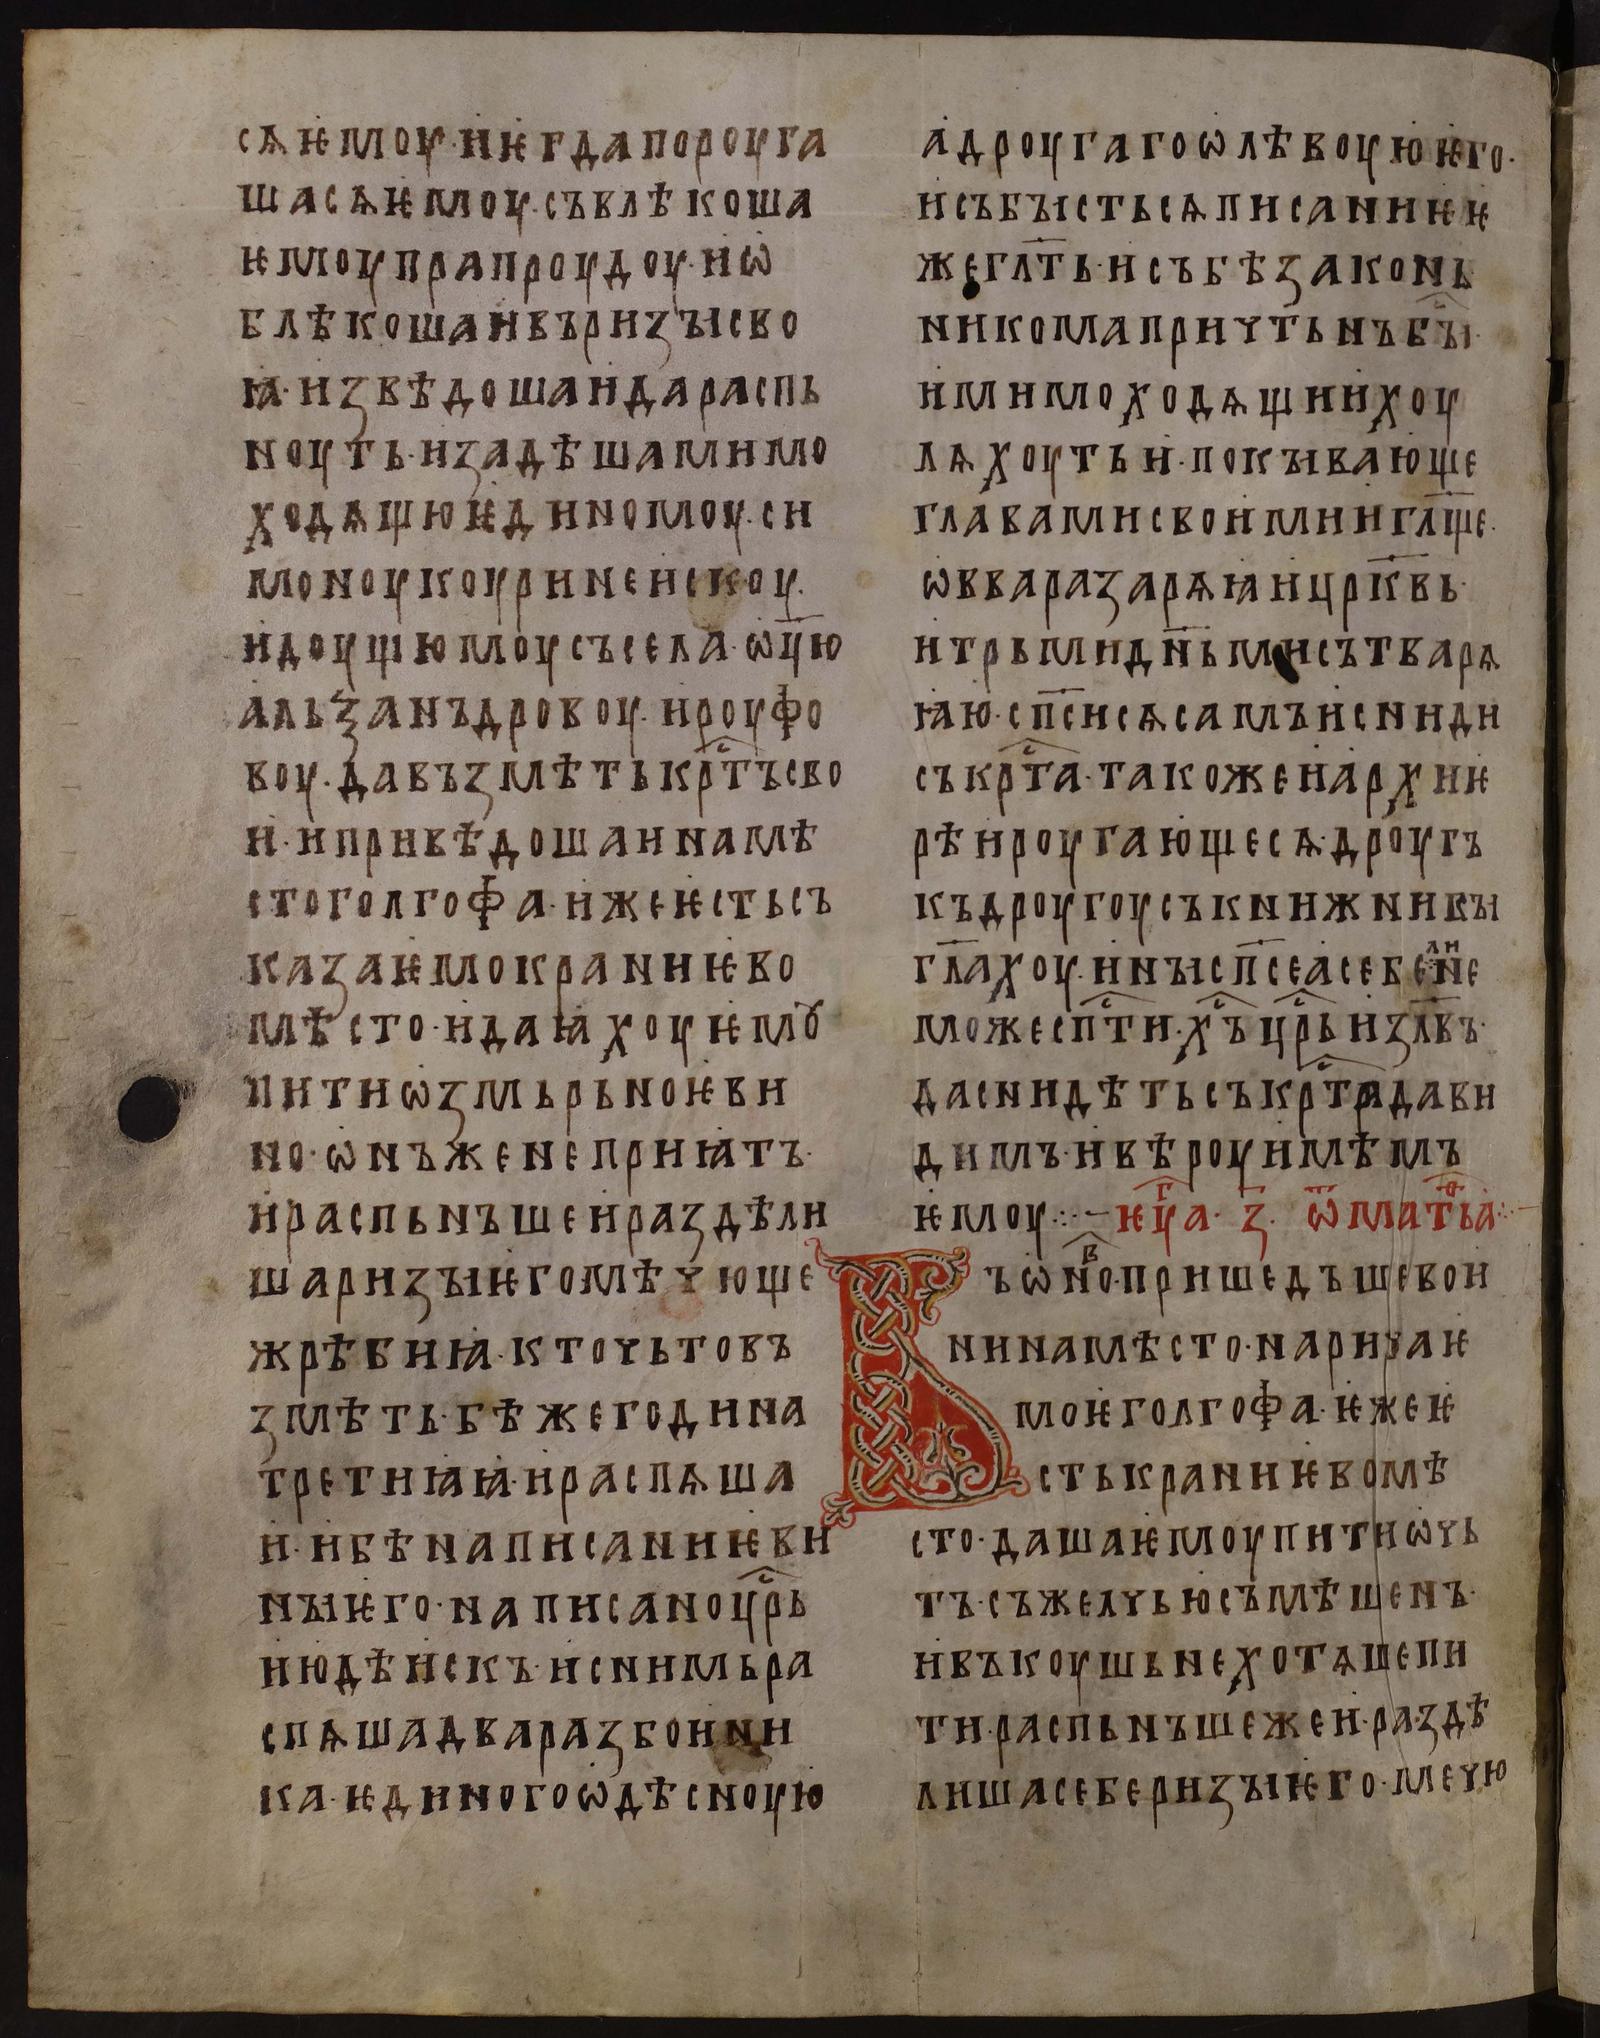 сѧѥмоу·иѥгдапороуга
шасѧѥмоу·съвлѣкоша
ѥмоупрапроудоу·иѡ
блѣкошаивъризъісво
ꙗ·извѣдошаидараспь
ноуть·изадѣшамимо
ходѧщюѥдиномоу·си
моноукоуринеискоу·
идоущюмоусъсела·ѡц҃ю
альѯанъдровоу·ироуфо
воу·давъзмѣтькрⷭ҇тъсво
и·ипривѣдошаинамѣ
стоголгофа·ижеѥстьсъ
казаѥмокраниѥво
мѣсто·идаꙗхоуѥмꙋ
питиѡзмьрьноѥви
но·ѡнъженеприꙗтъ·
ираспьнъшеираздѣли
шаризъіѥгомѣчюще
жрѣбиꙗ·кточьтовъ
змѣть·бѣжегодина
третиꙗꙗ·ираспѧша
и·ибѣнаписаниѥви
нъіѥго·написаноцрⷭ҇ь
июдѣискъ·иснимьра
спѧшадваразбоини
ка·ѥдиногоѡдѣсноую
адроугагоѡлѣвоуюѥго·
исъбъістьсѧписаниѥѥ
жегл҃ть·исъбѣзаконь
никомапричтьнъбъіⷭ҇·
имимоходѧщиихоу
лѧхоутьи·покъівающе
главамисвоимиигл҃ще·
ѡвваразарѧꙗицрк҃вь·
итрьмидн҃ьмисътварѧ
ꙗю·сп҃сисѧсамъисниди
съкрⷭ҇та·такожеиархиѥ
рѣироугающесѧ·дроугъ
къдроугоусъкнижникъі
гл҃ахоу·инъісп҃сеасебелине
можесп҃тⷭ҇и·хⷭ҇ъцрⷭ҇ьизл҃въ·
даснидѣтьсъкрⷭ҇тадави
димъ·ивѣроуимѣмъ
ѥмоу⁘–ѥⷢ҇уа·з҃·ѿматⷴ҇ьа⁘
Въѡноⷡ҇·пришедъшевои
ининамѣсто·наричаѥ
моѥголгофа·ѥжеѥ
стькраниѥвомѣ
сто·дашаѥмоупитиѡчь
тъ·съжелчьюсъмѣшенъ·
ивъкоушьнехотѧшепи
ти·распьнъшежеи·раздѣ
лишасеберизъіѥго·мечю